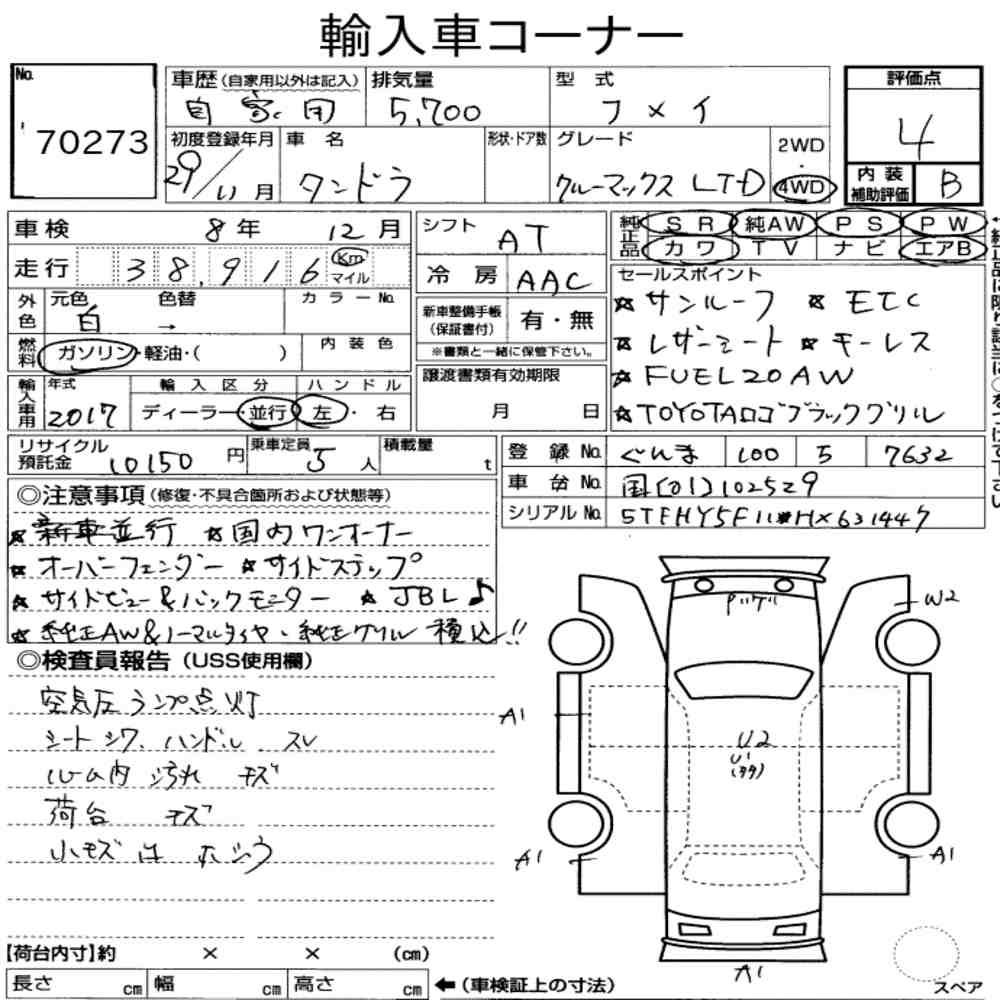 輸入車コーナー
No. 70273
車歴 (自家用以外は記入) 自家用
排気量 5,700
型式 フメイ
評価点 4
内装補助評価 B
初度登録年月 29/11月
車名 タンドラ
形状・ドア数
グレード クルーマックス LTD
2WD
4WD
車検 8年 12月
走行 38,916 Km マイル
シフト AT
冷房 AAC
純正品 SR 純AW PS PW
カワ TV ナビ エアB
外色 元色 白 色替 → カラーNo.
燃料 ガソリン・軽油・( ) 内装色
新車整備手帳(保証書付) 有・無
※書類と一緒に保管下さい。
セールスポイント
☆サンルーフ ☆ETC
☆レザーシート ☆キーレス
☆FUEL20AW
☆TOYOTAロゴブラックグリル
輸入車用 年式 2017
輸入区分 ディーラー・並行
ハンドル 左・右
譲渡書類有効期限 月 日
リサイクル預託金 10150円
乗車定員 5人
積載量 t
登録No. ぐんま 100 5 7632
車台No. 国[01]102529
シリアルNo. 5TFHY5F11#HX631447
◎注意事項 (修復・不具合箇所および状態等)
☆新車並行 ☆国内ワンオーナー
☆オーバーフェンダー ☆サイドステップ
☆サイドビュー&バックモニター ☆JBL♪
☆純正AW&ノーマルタイヤ・純正グリル 積込!!
◎検査員報告 (USS使用欄)
空気圧ランプ点灯
シートシワ、ハンドル スレ
ルーム内 汚れ キズ
荷台 キズ
小キズ は ホシュウ
W2
A1
U2
U1
A1
A1
A1
【荷台内寸】約 × × (cm)
長さ cm 幅 cm 高さ cm
←(車検証上の寸法)
スペア